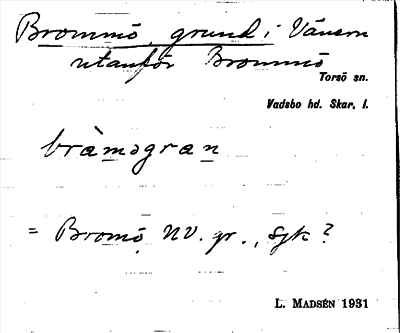 Brommö, grund i Vänern
utanför Brommö
Torsö sn.
Vadsbo hd. Skar. l.
bràmogran
= Bromö NV. gr., sjk?
L. MADSÉN 1931